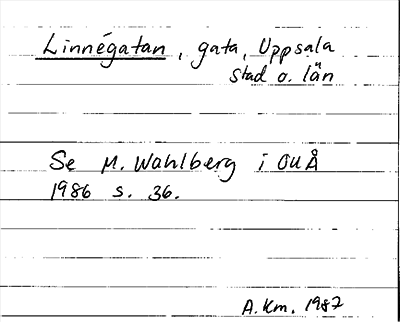 Linnégatan, gata, Uppsala
stad o. län
Se M. Wahlberg i OUÅ
1986 s. 36.
A. Km. 1987